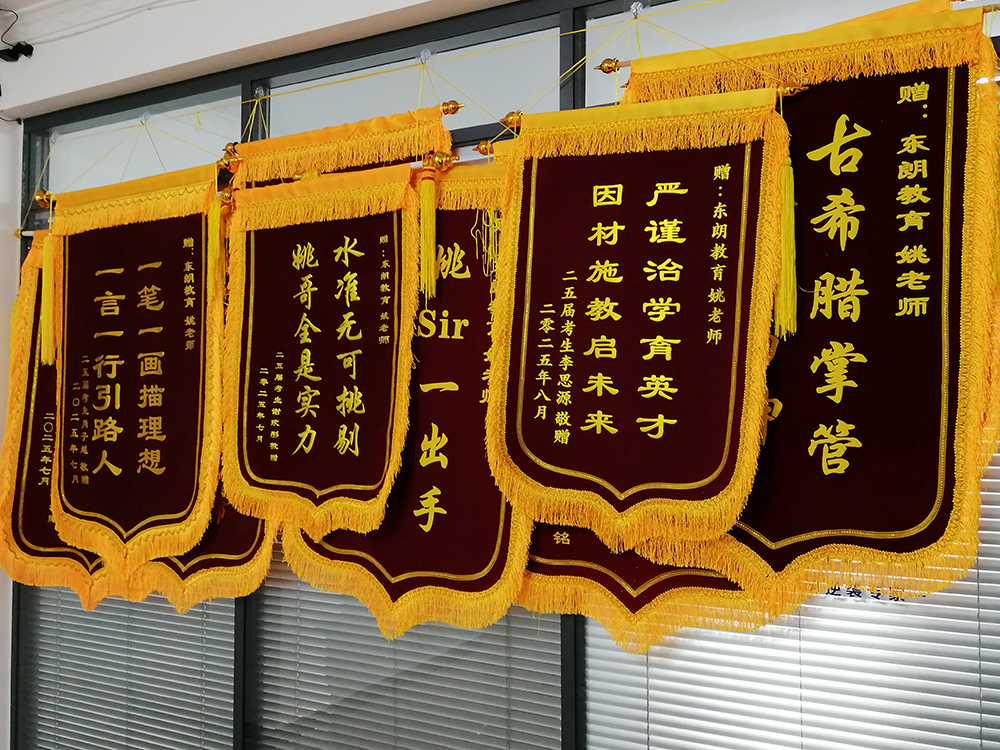 二〇二五年七月
赠：东朗教育 姚老师
一笔一画描理想
一言一行引路人
二五届考生周子越敬赠
二〇二五年七月
赠：东朗教育 姚老师
水准无可挑剔
姚哥全是实力
二五届考生谢欣彤敬赠
二〇二五年七月
老师
姚Sir一出手
赠：东朗教育 姚老师
严谨治学育英才
因材施教启未来
二五届考生李思源敬赠
二零二五年八月
铭
赠：东朗教育 姚老师
古希腊掌管
逆袭专家